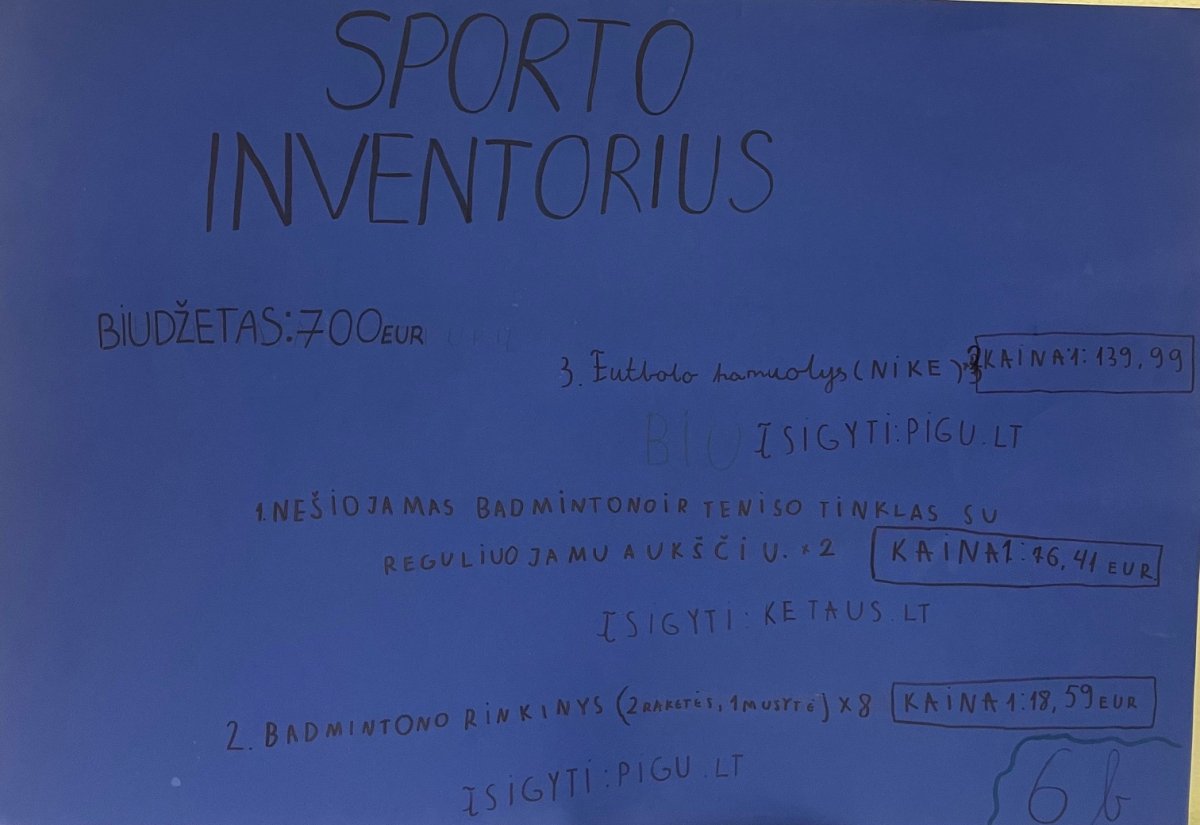 SPORTO
INVENTORIUS
BIUDŽETAS: 700 EUR
3. Futbolo kamuolys (NIKE) ×3 KAINA 1: 139,99
ĮSIGYTI: PIGU.LT
1. NEŠIOJAMAS BADMINTONO IR TENISO TINKLAS SU
REGULIUOJAMU AUKŠČIU. × 2 KAINA 1: 76,41 EUR
ĮSIGYTI: KETAUS.LT
2. BADMINTONO RINKINYS (2 RAKETĖS, 1 MUSYTĖ) × 8 KAINA 1: 18,59 EUR
ĮSIGYTI: PIGU.LT
6 b